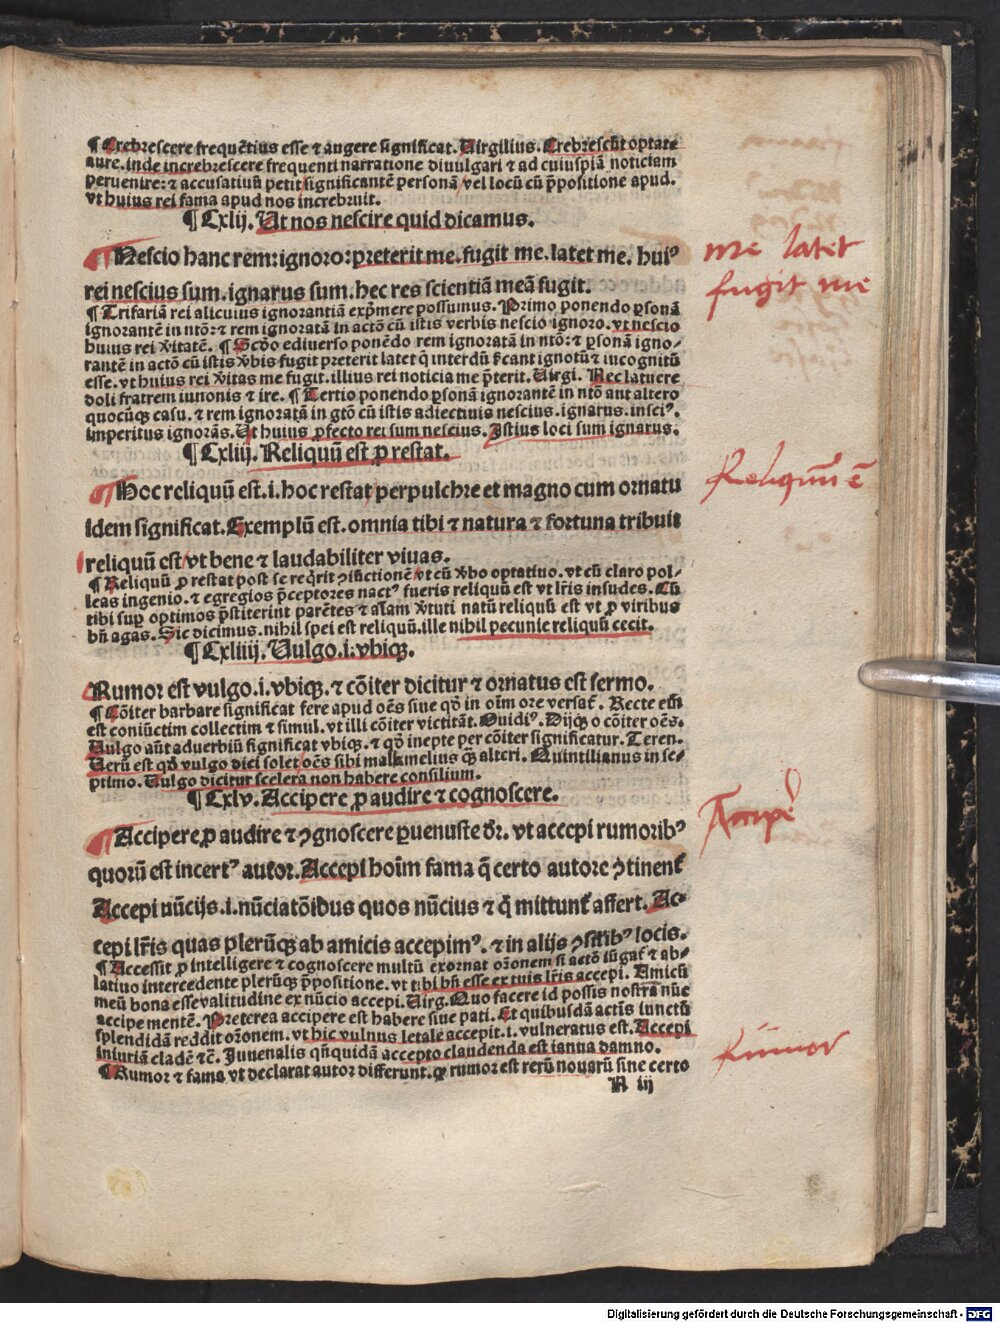 ¶ Crebrescere frequẽtius esse ⁊ augere significat. Virgilius. Crebrescũt optate
aure. inde increbrescere frequenti narratione diuulgari ⁊ ad cuiuspiã noticiam
peruenire: ⁊ accusatiuũ petit significantẽ personã vel locũ cũ p̃positione apud.
vt huius rei fama apud nos increbuit.
¶ Cxlij. Ut nos nescire quid dicamus.
Nescio hanc rem: ignoro: preterit me. fugit me. latet me. huiꝰ
rei nescius sum. ignarus sum. hec res scientiã meã fugit.
me latet
fugit me
¶ Trifariã rei alicuius ignorantiã exp̃mere possumus. Primo ponendo ꝑsonã
ignorantẽ in ntõ: ⁊ rem ignoratã in actõ cũ istis verbis nescio ignoro. vt nescio
huius rei v̾itatẽ. ¶ Scd̃o ediuerso ponẽdo rem ignoratã in ntõ: ⁊ ꝑsonã igno-
rantẽ in actõ cũ istis v̾bis fugit preterit latet q̃ interdũ
esse. vt huius rei v̾itas me fugit. illius rei noticia me p̃terit. Virgi. Nec latuere
doli fratrem iunonis ⁊ ire. ¶ Tertio ponendo ꝑsonã ignorantẽ in ntõ aut altero
quocũqꝫ casu. ⁊ rem ignoratã in gtõ cũ istis adiectiuis nescius. ignarus. insciꝰ.
imperitus ignorãs. Ut huius ꝓfecto rei sum nescius. Istius loci sum ignarus.
¶ Cxliij. Reliquũ est ꝓ restat.
Hoc reliquũ est. i. hoc restat perpulchre et magno cum ornatu
Reliquũ ẽ
idem significat. Exemplũ est. omnia tibi ⁊ natura ⁊ fortuna tribuit
reliquũ est vt bene ⁊ laudabiliter viuas.
¶ Reliquũ ꝓ restat post se req̃rit ꝯiũctionẽ vt cũ v̾bo optatiuo. vt cũ claro pol-
leas ingenio. ⁊ egregios p̃ceptores nactꝰ fueris reliquũ est vt lr̃is insudes. Cũ
tibi suꝑ optimos p̃stiterint parẽtes ⁊ v̾tuti natũ reliquũ est vt ꝓ viribus
bñ agas. Sic dicimus. nihil spei est reliquũ. ille nihil pecunie reliquũ fecit.
¶ Cxliiij. Vulgo. i. vbiqꝫ.
Rumor est vulgo. i. vbiqꝫ. ⁊ cõiter dicitur ⁊ ornatus est sermo.
¶ Cõiter barbare significat fere apud oẽs siue qd̾ in oĩm ore versat̃. Recte eñi
est coniũctim collectim ⁊ simul. vt illi cõiter victitãt. Ouidiꝰ. Dijqꝫ o cõiter oẽs.
Vulgo aũt aduerbiũ significat vbiqꝫ. ⁊ qd̾ inepte per cõiter significatur. Teren.
Verũ est qd̾ vulgo dici solet oẽs sibi malle melius qꝫ alteri. Quintilianus in se-
ptimo. Vulgo dicitur scelera non habere consilium.
¶ Cxlv. Accipere ꝓ audire ⁊ cognoscere.
Accipere ꝓ audire ⁊ ꝯgnoscere ꝑuenuste dr̃. vt accepi rumoribꝰ
quorũ est incertꝰ autor. Accepi hoĩm fama q̃ certo autore ꝯtinent̃
Accepi nũcijs. i. nũciatõibus quos nũcius ⁊ q̃ mittunt̃ affert. Ac-
cepi lr̃is quas plerũqꝫ ab amicis accepimꝰ. ⁊ in alijs ꝯsil̃ibꝰ locis.
¶ Accessit ꝓ intelligere ⁊ cognoscere multũ exornat or̃onem si actõ iũgat̃ ⁊ ab-
latiuo intercedente plerũqꝫ p̃positione. vt tibi bñ esse ex tuis lr̃is accepi. Amicũ
meũ bona esse valitudine ex nũcio accepi. Virg. Quo facere id possis nostrã nũc
accipe mentẽ. Preterea accipere est habere siue pati. Et quibusdã actis iunctũ
splendidã reddit or̃onem. vt hic vulnus letale accepit. i. vulneratus est. Accepi
iniuriã cladẽ ⁊c̃. Juuenalis qñquidã accepto claudenda est ianua damno.
Rumor
¶ Rumor ⁊ fama vt declarat autor differunt. qꝛ rumor est rerũ nouarũ sine certo
N iij
Digitalisierung gefördert durch die Deutsche Forschungsgemeinschaft - DFG